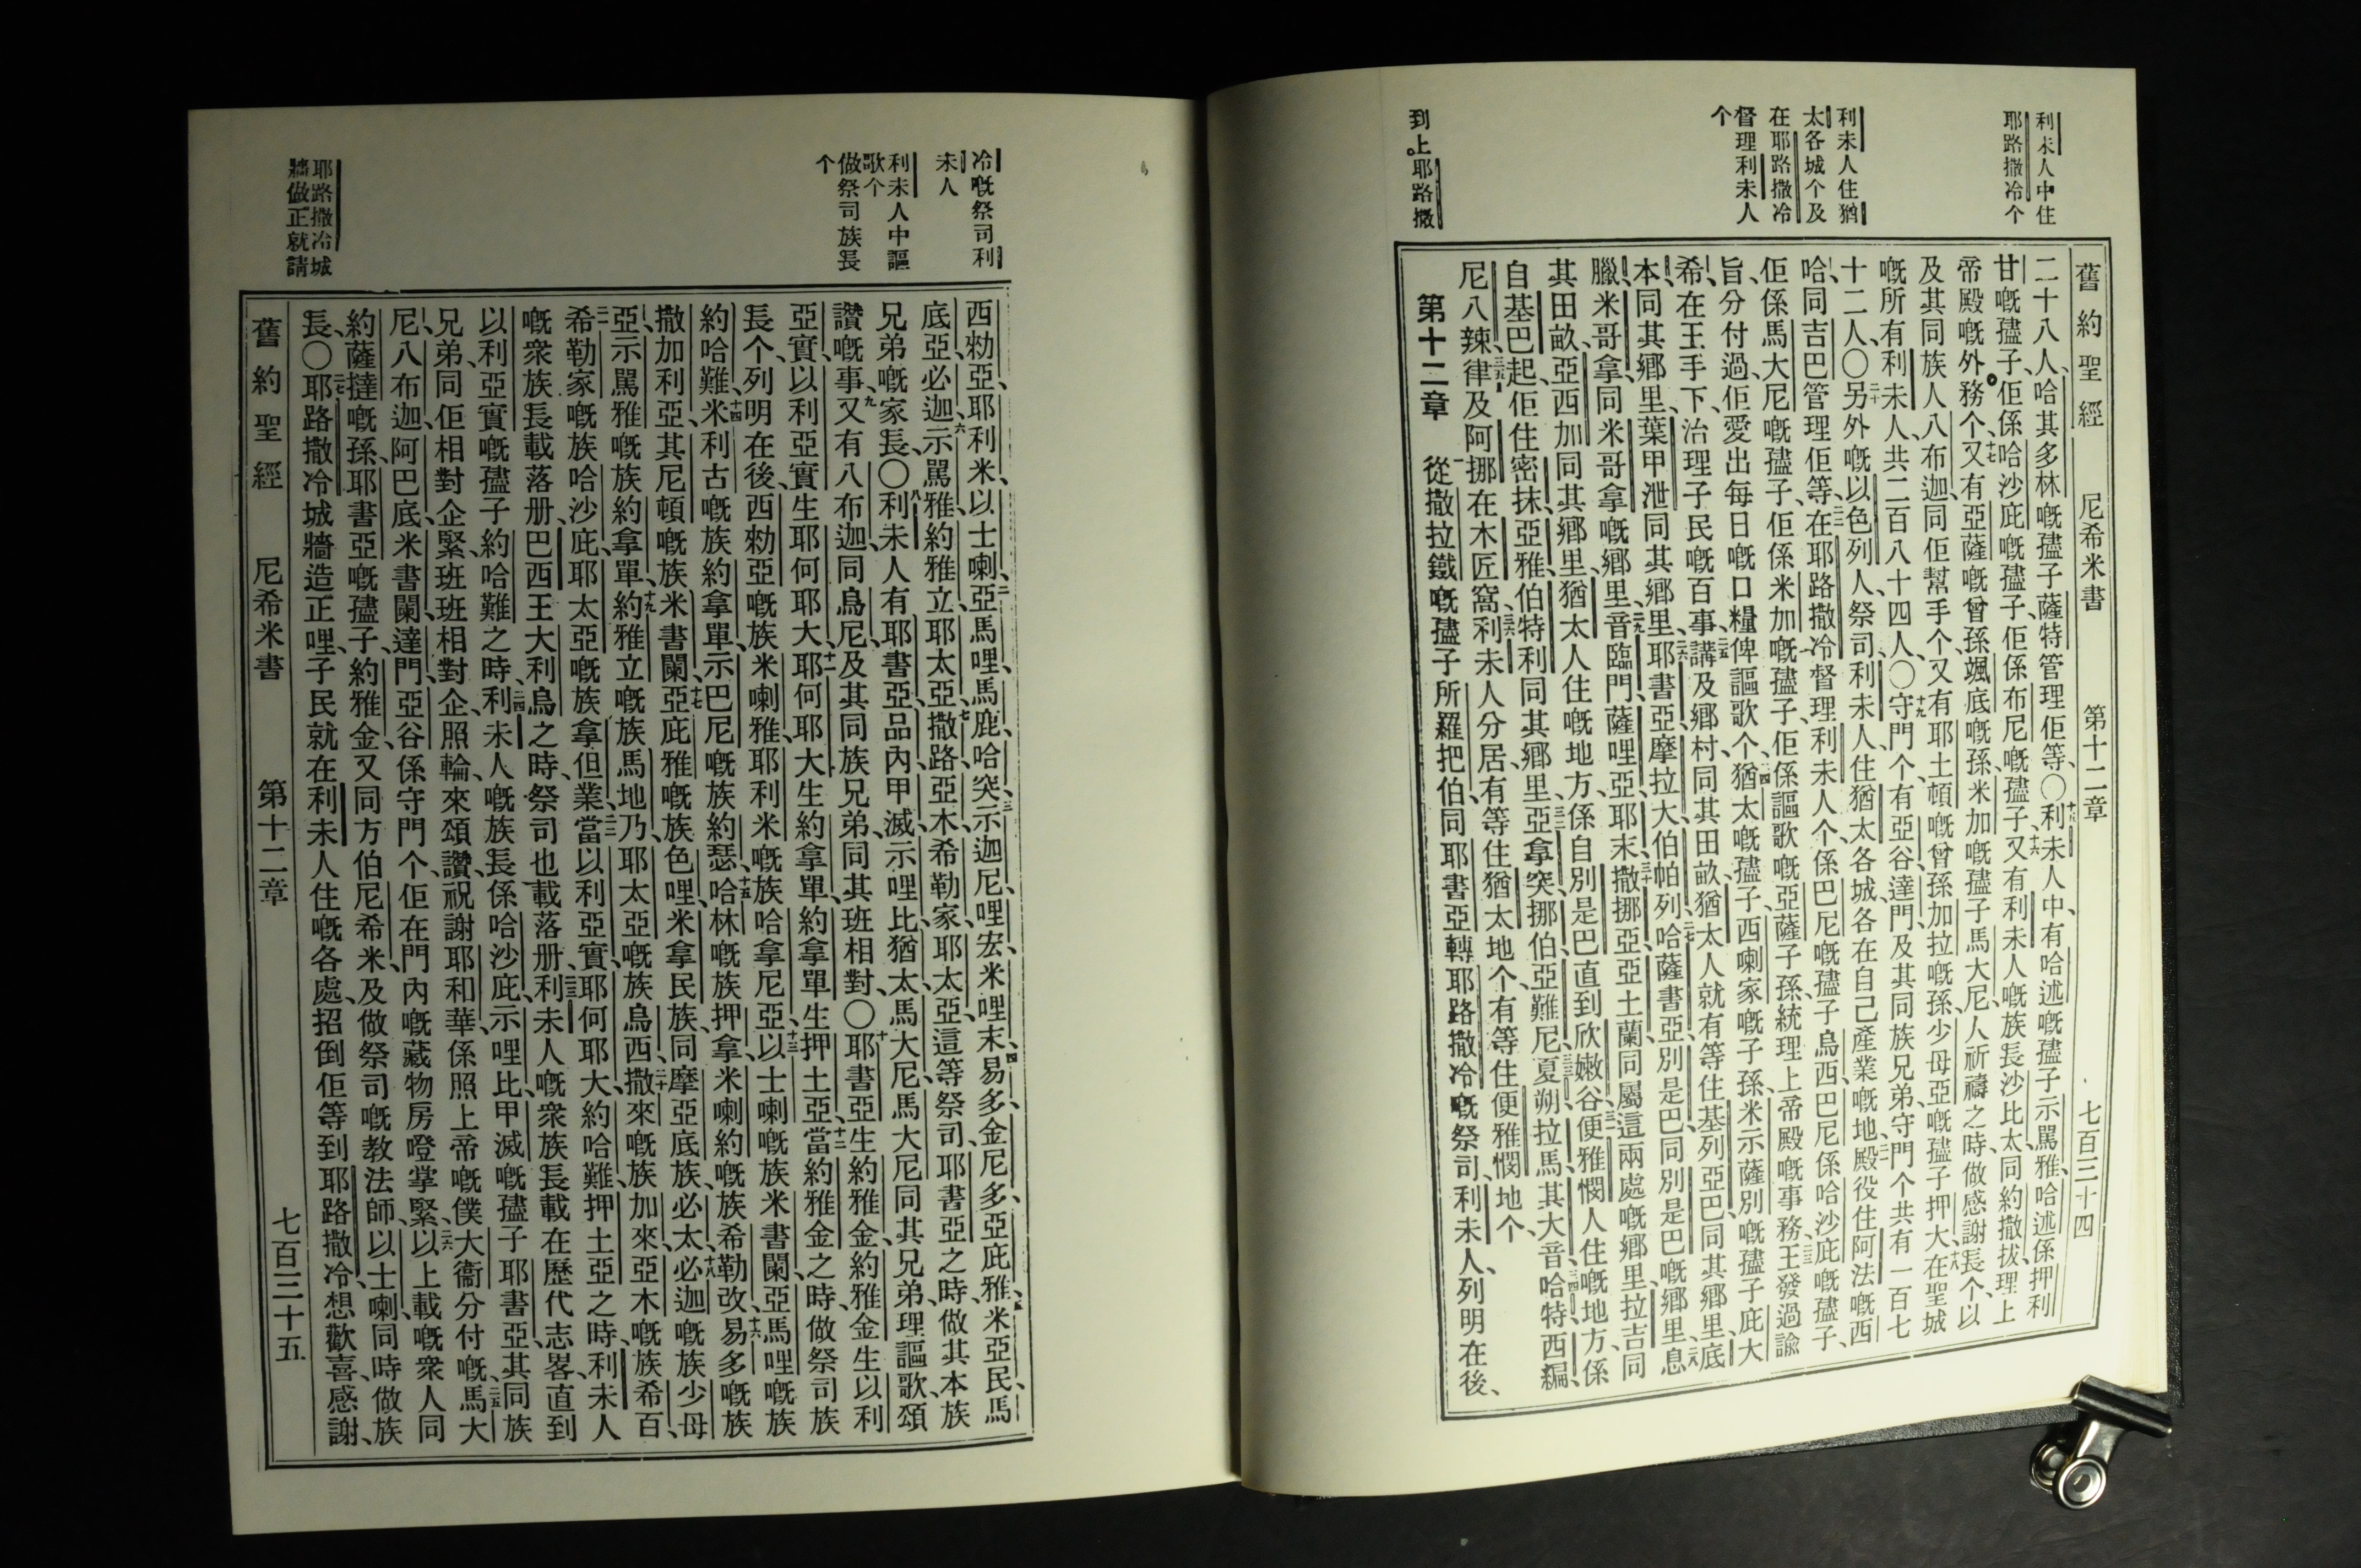 舊約聖經　尼希米書　第十二章　七百三十四
利未人中住
耶路撒冷个
利未人住猶
太各城个及
在耶路撒冷
督理利未人
个
到上。耶路撒
二十八人、哈其多林嘅孻子薩特管理佢等、〇利未人中、有哈述嘅孻子示罵雅、哈述係押利
甘嘅孻子、佢係哈沙庇嘅孻子、佢係布尼嘅孻子、又有利未人嘅族長沙比太同約撒拔理上
帝殿嘅外務个、又有亞薩嘅曾孫颯底嘅孫、米加嘅孻子馬大尼、人祈禱之時、做感謝長个、以
及其同族人八布迦、同佢幫手个、又有耶土頓嘅曾孫加拉嘅孫、少母亞嘅孻子押大、在聖城
嘅所有利未人、共二百八十四人、〇守門个、有亞谷達門、及其同族兄弟、守門个共有一百七
十二人〇另外嘅以色列人、祭司、利未人、住猶太各城、各在自己產業嘅地、殿役住阿法嘅西
哈同吉巴管理佢等、在耶路撒冷督理利未人个、係巴尼嘅孻子烏西、巴尼係哈沙庇嘅孻子、
佢係馬大尼嘅孻子、佢係米加嘅孻子、佢係謳歌嘅亞薩子孫、統理上帝殿嘅事務、王發過諭
旨、分付過佢、愛出每日嘅口糧俾謳歌个、猶太嘅孻子、西喇家嘅子孫、米示薩別嘅孻子庇大
希、在王手下、治理子民嘅百事、講及鄉村、同其田畝、猶太人就有等住基列亞巴、同其鄉里、底
本同其鄉里、葉甲泄同其鄉里、耶書亞、摩拉大、伯帕列、哈薩書亞、別是巴、同別是巴嘅鄉里、息
臘、米哥拿、同米哥拿嘅鄉里、音臨門、薩哩亞、耶末、撒挪亞、亞土蘭、同屬這兩處嘅鄉里、拉吉同
其田畝、亞西加同其鄉里、猶太人住嘅地方、係自別是巴直到欣嫩谷、便雅憫人住嘅地方、係
自基巴起、佢住密抹、亞雅、伯特利同其鄉里、亞拿突、挪伯、亞難尼、夏朔、拉馬、其大音、哈特、西編、
尼八辣、律及阿挪、在木匠窩、利未人分居、有等住猶太地个、有等住便雅憫地个、
第十二章　從撒拉鐵嘅孻子所羅把伯、同耶書亞轉耶路撒冷嘅祭司、利未人、列明在後、
冷嘅祭司利
未人
利未人中謳
歌个
做祭司族長
个
耶路撒冷城
牆做正就請
西勑亞、耶利米、以士喇、亞馬哩、馬鹿、哈突、示迦尼、哩宏、米哩末、易多、金尼多、亞庇雅、米亞民、馬
底亞、必迦、示罵雅、約雅立、耶太亞、撒路、亞木、希勒家、耶太亞、這等祭司、耶書亞之時、做其本族
兄弟嘅家長、〇利未人有耶書亞、品內、甲滅、示哩比、猶太、馬大尼、馬大尼同其兄弟、理謳歌、頌
讚嘅事、又有八布迦同烏尼、及其同族兄弟、同其班相對、〇耶書亞生約雅金、約雅金生以利
亞實、以利亞實生耶何耶大、耶何耶大生約拿單、約拿單生押土亞、當約雅金之時、做祭司族
長个、列明在後、西勑亞嘅族米喇雅、耶利米嘅族哈拿尼亞、以士喇嘅族米書闌、亞馬哩嘅族
約哈難、米利古嘅族約拿單、示巴尼嘅族約瑟、哈林嘅族押拿、米喇約嘅族希勒改、易多嘅族
撒加利亞、其尼頓嘅族米書闌、亞庇雅嘅族色哩、米拿民族、同摩亞底族、必太、必迦嘅族少母
亞、示罵雅嘅族約拿單、約雅立嘅族馬地乃、耶太亞嘅族烏西、撒來嘅族加來、亞木嘅族希百、
希勒家嘅族哈沙庇、耶太亞嘅族拿但業、當以利亞實、耶何耶大、約哈難、押土亞之時、利未人
嘅眾族長載落册、巴西王大利烏之時、祭司也載落册、利未人嘅眾族長載在歷代志畧、直到
以利亞實嘅孻子約哈難之時、利未人嘅族長、係哈沙庇、示哩比、甲滅嘅孻子耶書亞、其同族
兄弟、同佢相對企緊、班班相對企、照輪來頌讚祝謝耶和華、係照上帝嘅僕大衞分付嘅、馬大
尼、八布迦、阿巴底、米書闌、達門、亞谷、係守門个、佢在門內嘅藏物房嶝掌緊、以上載嘅眾人、同
約薩撻嘅孫、耶書亞嘅孻子約雅金、又同方伯尼希米、及做祭司嘅教法師、以士喇同時做族
長、〇耶路撒冷城牆造正哩、子民就在利未人住嘅各處、招倒佢等到耶路撒冷、想歡喜、感謝、
舊約聖經　尼希米書　第十二章　七百三十五